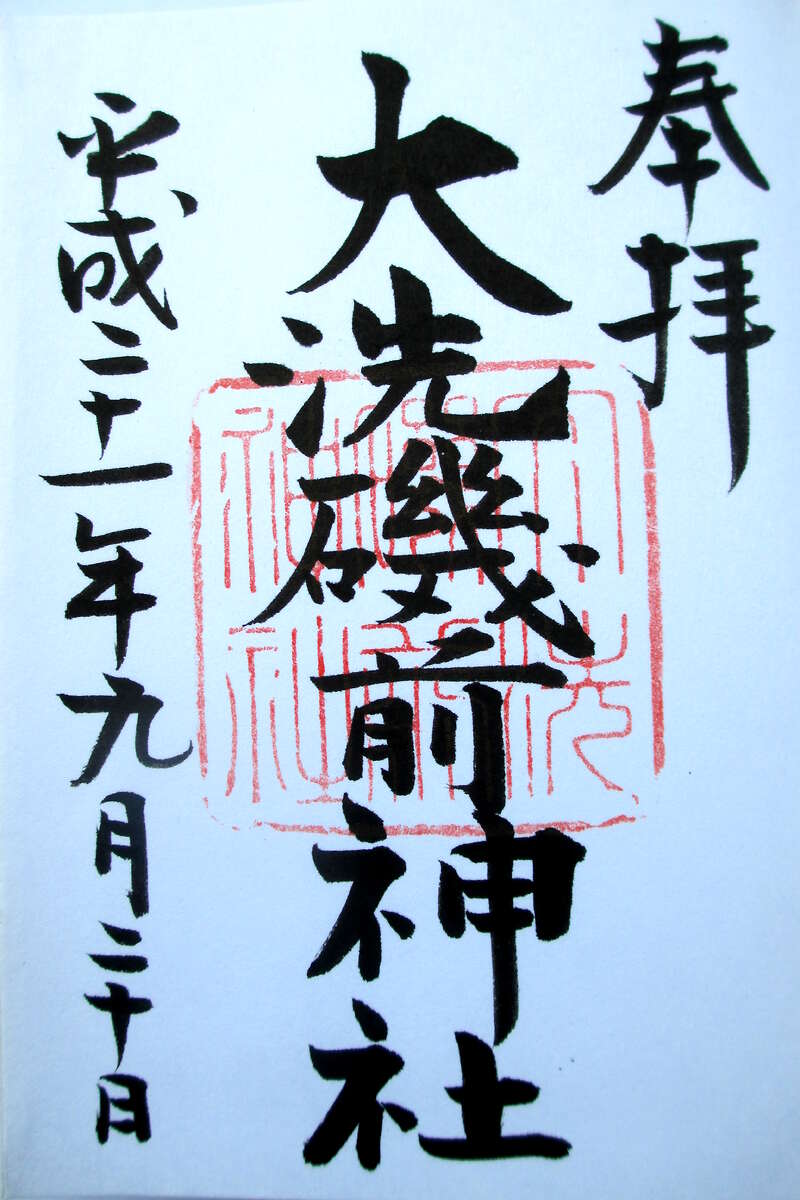 奉拝
大洗磯前神社
平成二十一年九月二十日